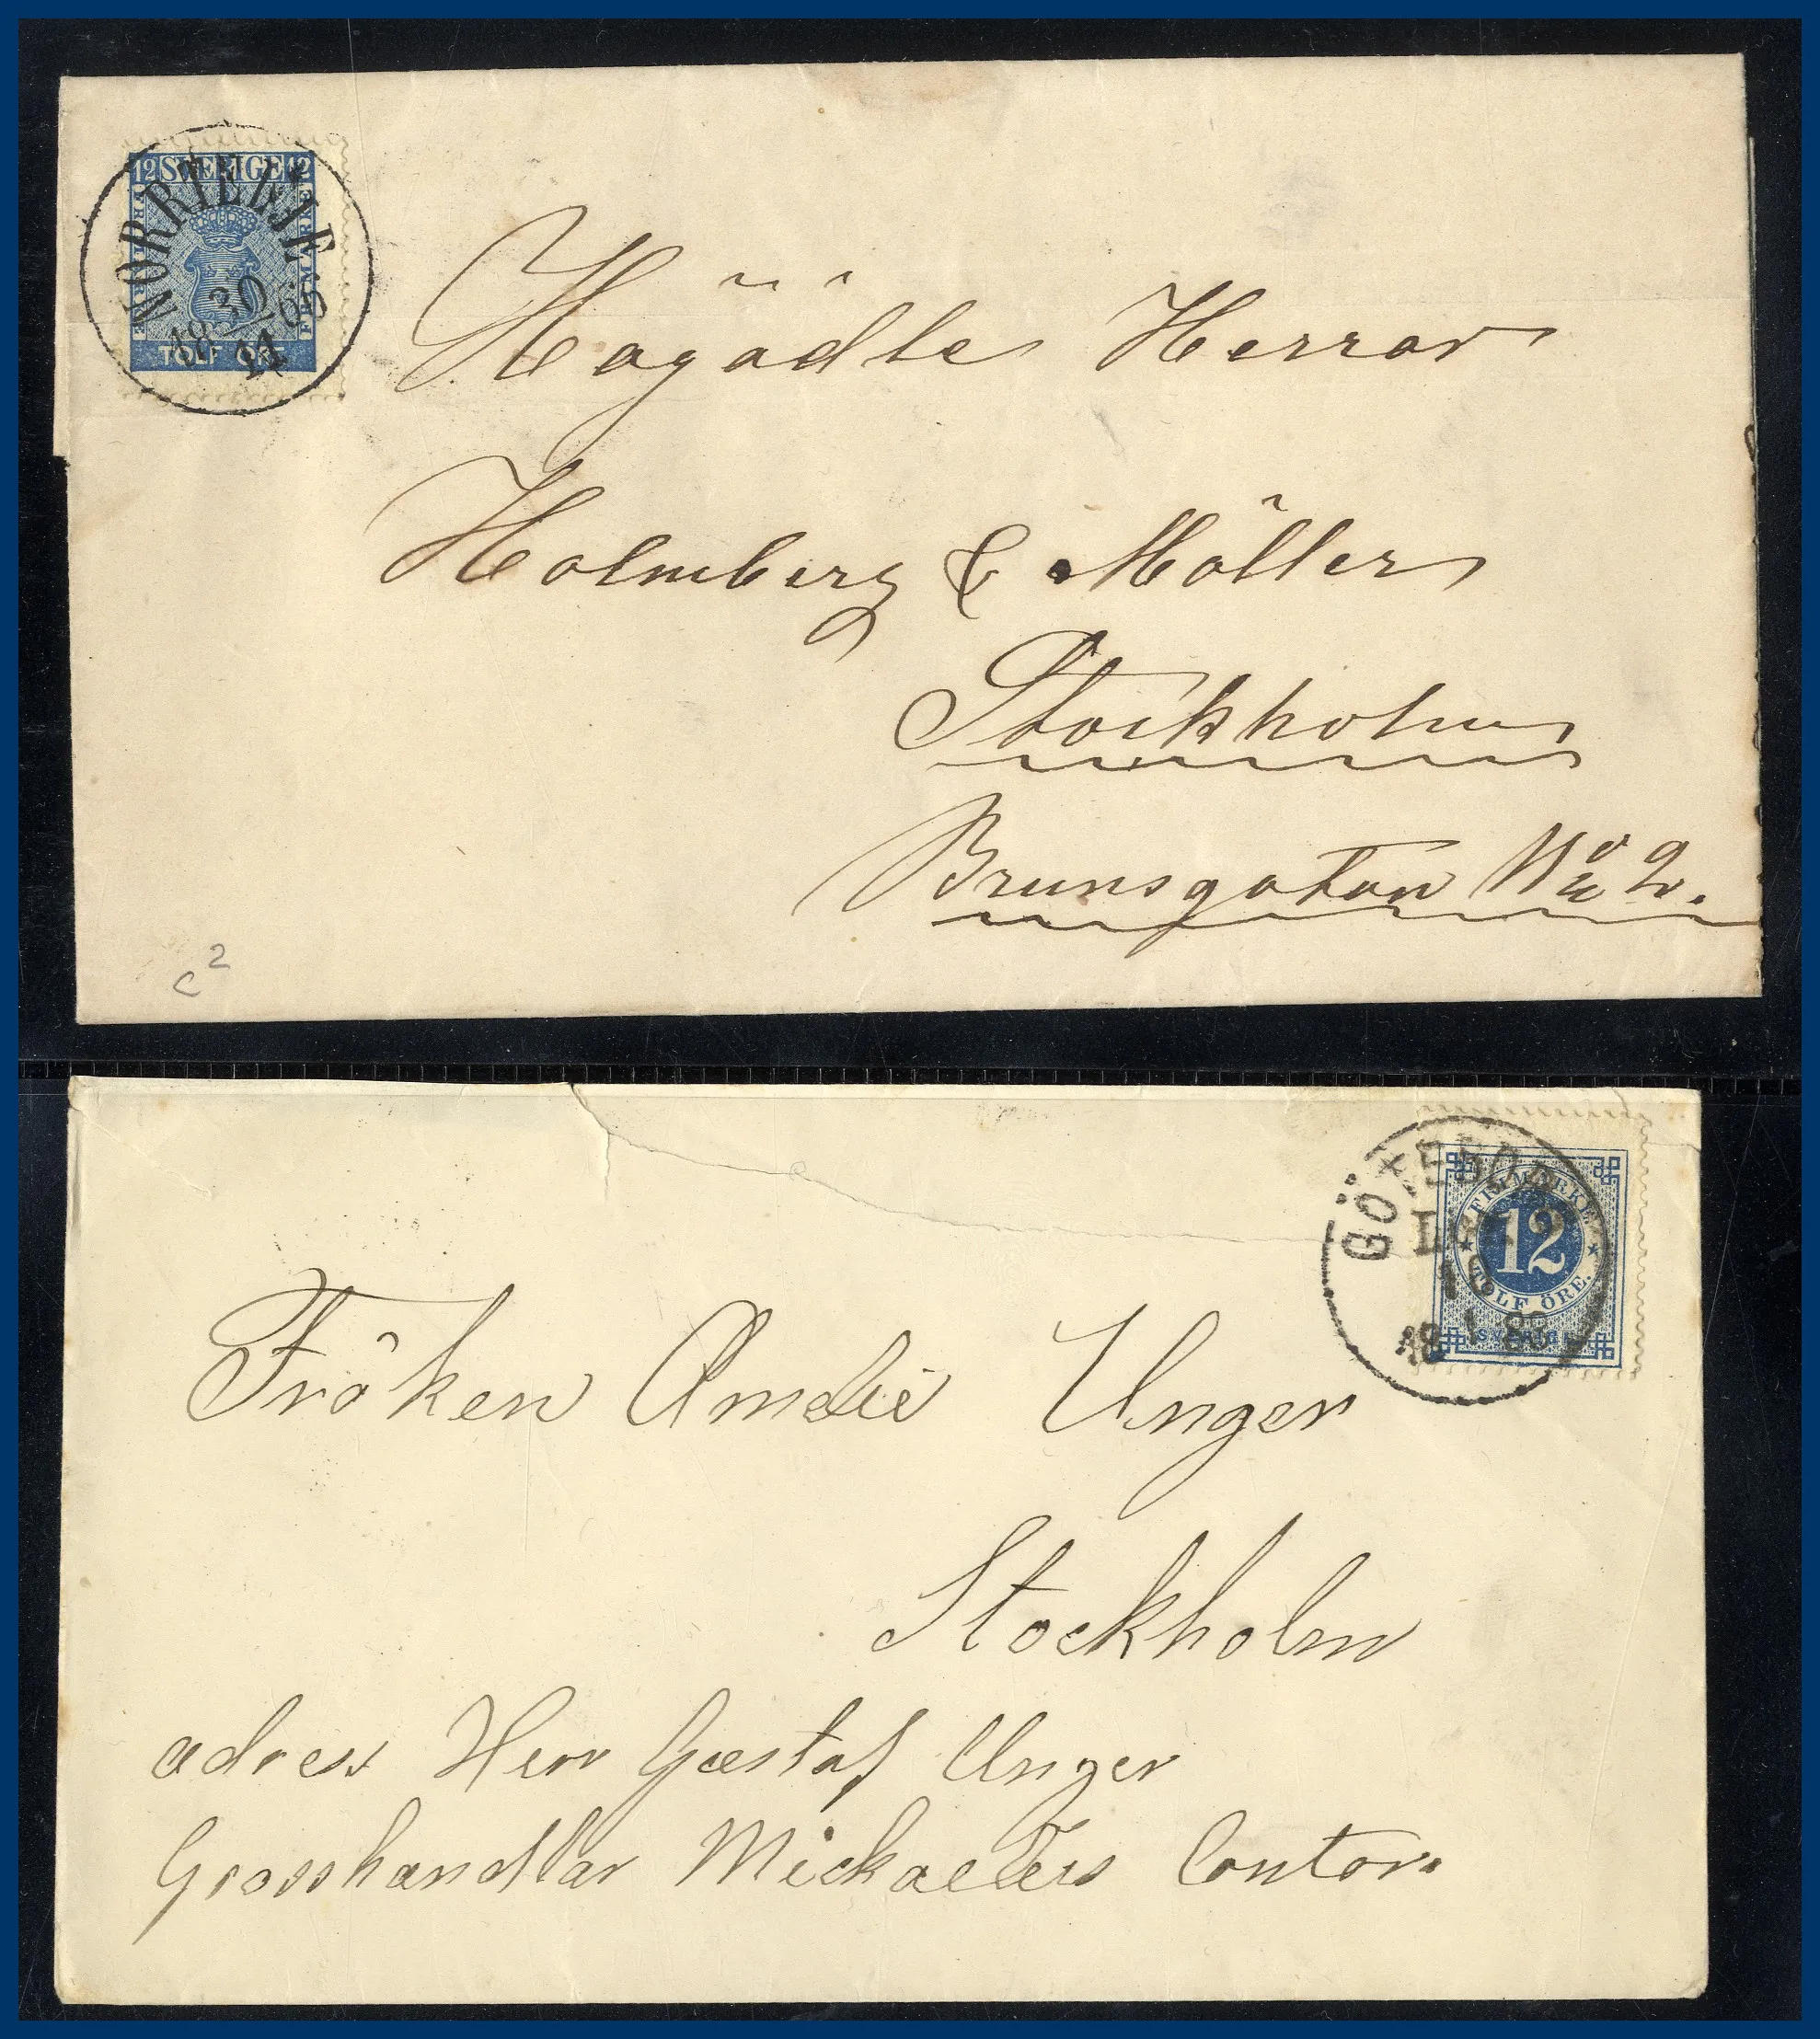 12 SVERIGE 12
FRIMÄRKE
FRIMÄRKE
TOLF ÖRE
NORRTELJE
30
18 65
11
Högädle Herrar
Holmberg & Möller
Stockholm
Brunsgatan No 2.
c2
GÖTEBORG
18
FRIMÄRKE
12
TOLF ÖRE.
SVERIGE
Fröken Amelie Unger
Stockholm
adress Herr Gustaf Unger
Grosshandlar Mickaellers Contor.